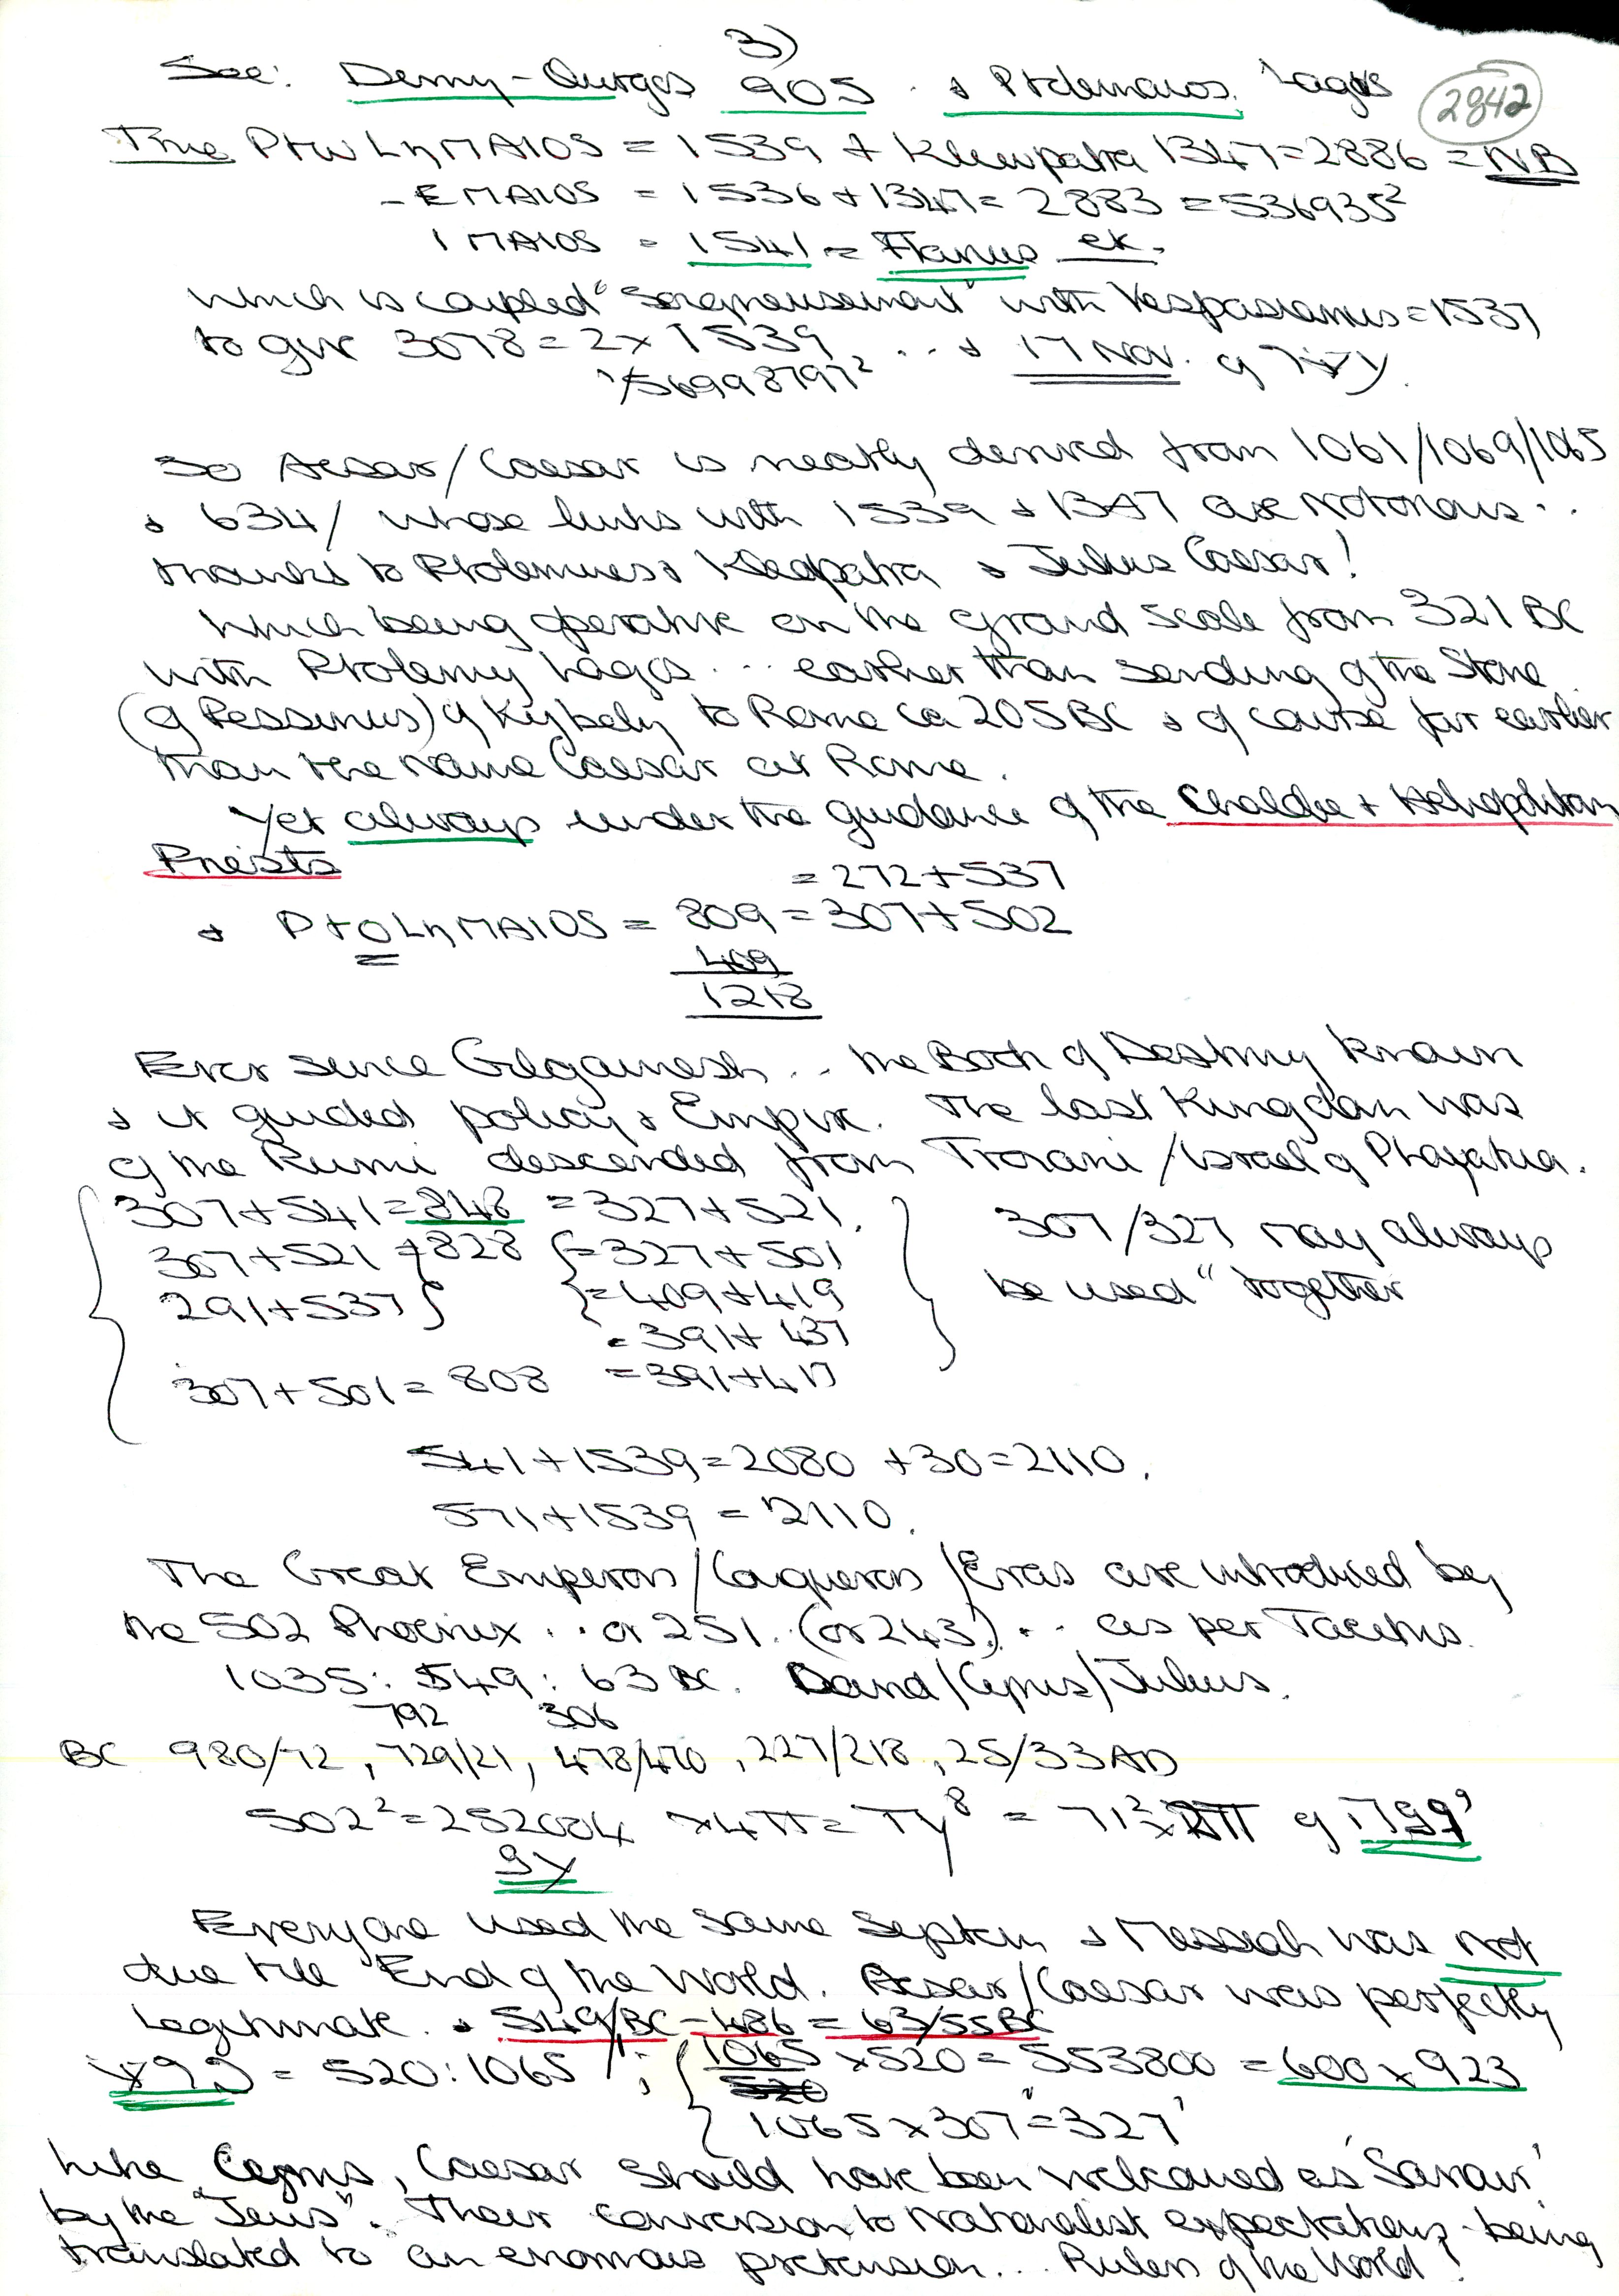 3)
See: Demy-Ourgos 905 . & Ptolemaios. Lagos
2842
True PtwLhMAIOS = 1539 + Kleopatra 1347 = 2886 = NB
- EMAIOS = 1536 + 1347 = 2883 = 536935²
1 MAIOS = 1541 = Flavius ek.
which is coupled "soigneusement" with Vespasianus = 1537
to give 3078 = 2 x 1539 ... & 17 Nov. of
56998797²
So Aesar/Caesar is neatly derived from 1061/1069/1065
& 634/ whose links with 1539 & 1347 are notorious..
thanks to Ptolemies & Kleopatra & Julius Caesar!
Which being operative on the grand scale from 321 BC
with Ptolemy Lagos ... earlier than sending of the Stone
(of Pessinus) of Kybely to Rome ca 205 BC & of course far earlier
than the name Caesar at Rome.
Yet always under the guidance of the Chaldee + Heliopolitan
Priests
= 272 + 537
& PtOLhMAIOS = 809 = 307 + 502
409
1218
Ever since Gilgamesh .. the Book of Destiny known
& it guided policy & Empire. The last Kingdom was
of the Rumi descended from Trojani / Israel of
307 + 541 = 848 = 327 + 521.
307 + 521 = 828 { = 327 + 501
291 + 537 } = 409 + 419
= 391 + 437
307 + 501 = 808 = 391 + 417
307/327 may always
be used "together
541 + 1539 = 2080 + 30 = 2110.
571 + 1539 = 2110.
The Great Emperors/Conquerors/Eras are introduced by
the 502 Phoenix .. or 251. (or 243) .. as per Tacitus.
1035 : 549 : 63 BC. David/Cyrus/Julius.
792 306
BC 980/72, 729/21, 478/470, 227/218, 25/33 AD
502² = 252004 x 4π = Ty⁸ = 71² x π of
9y
Everyone used the same system & Messiah was not
due till End of the World. Aesar/Caesar was perfectly
legitimate. & 549/BC - 486 = 63/55 BC
= 520 : 1065 ; { 1065 x 520 = 553800 = 600 x 923
520
1065 x 307 = 327'
Like Cyrus, Caesar should have been welcomed as 'Saviour'
by the "Jews". Their conversion to Nationalist expectations - being
translated to an enormous pretension... Rulers of the World!